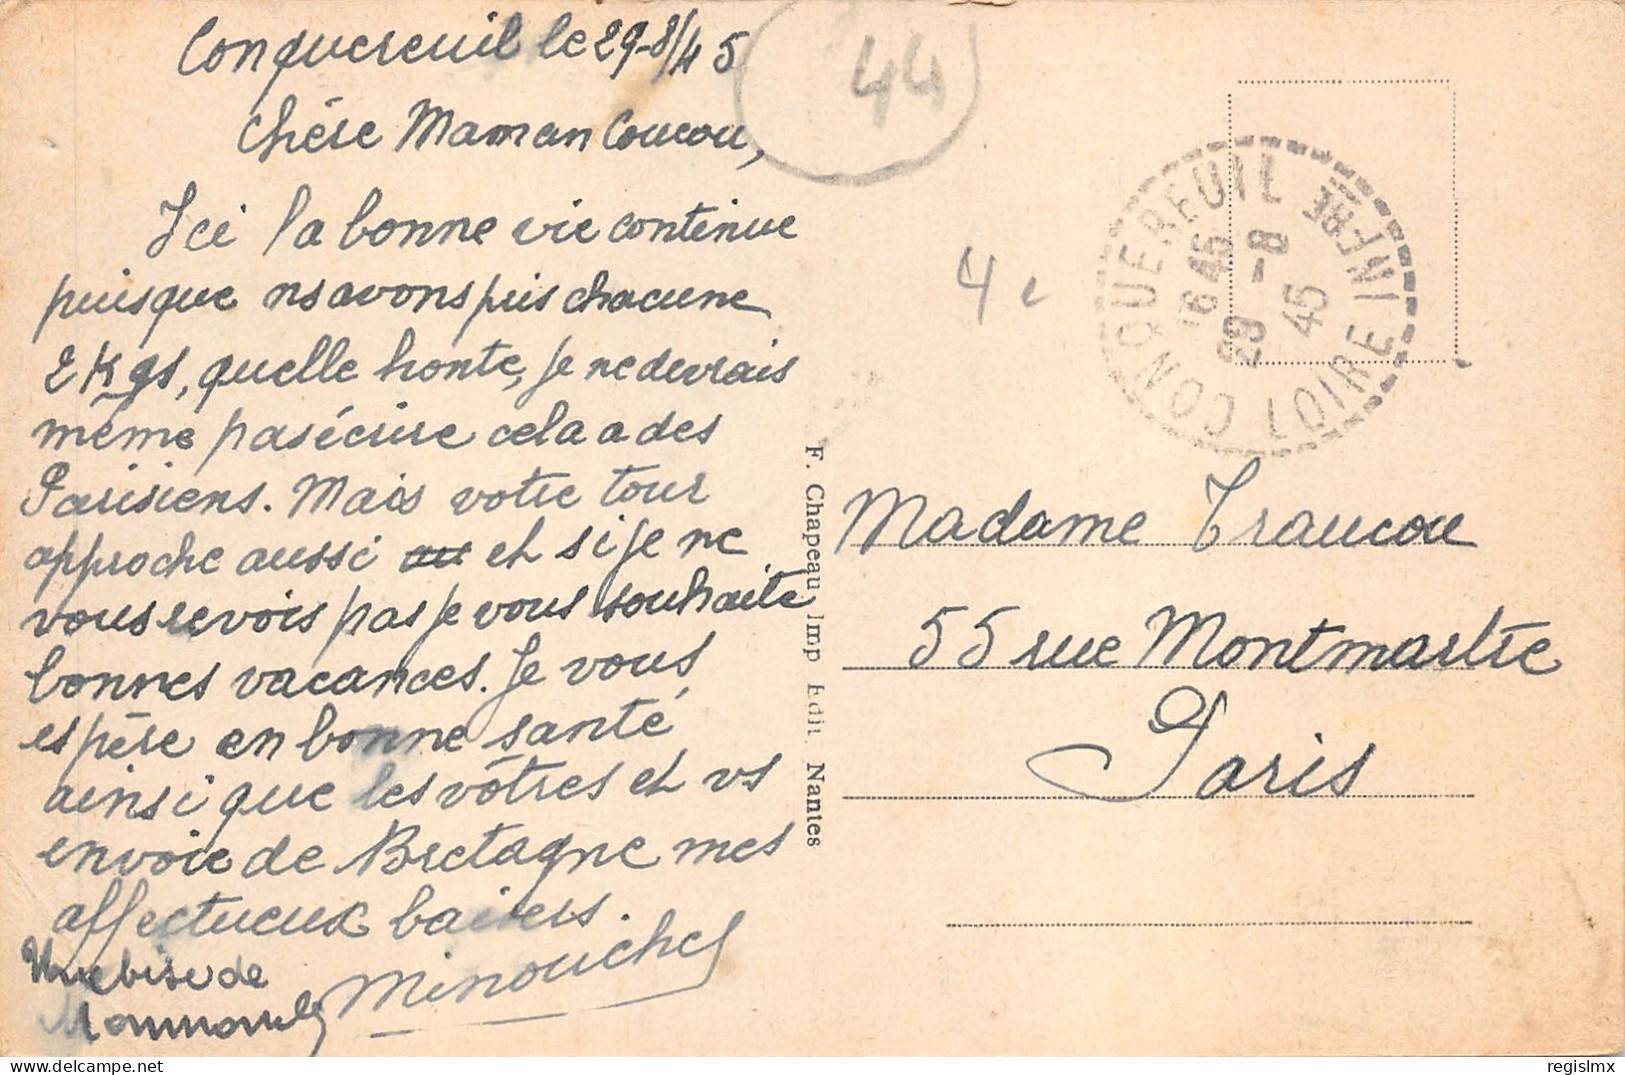 Conquereuil le 29-8/45
Chère Maman Coucou,
Ici la bonne vie continue
puisque ns avons pris chacune
2 Kgs, quelle honte, je ne devrais
même pas écrire cela a des
Parisiens. Mais votre tour
approche aussi et si je ne
vous revois pas je vous souhaite
bonnes vacances. Je vous
espère en bonne santé
ainsi que les vôtres et vs
envoie de Bretagne mes
affectueux baisers.
Minouche
Une bise de
44
4 e
CONQUEREUIL
LOIRE INFÉRE
16 45
29 -8
45
F. Chapeau, Imp. Edit. Nantes
Madame Traucou
55 rue Montmartre
Paris
regislmx